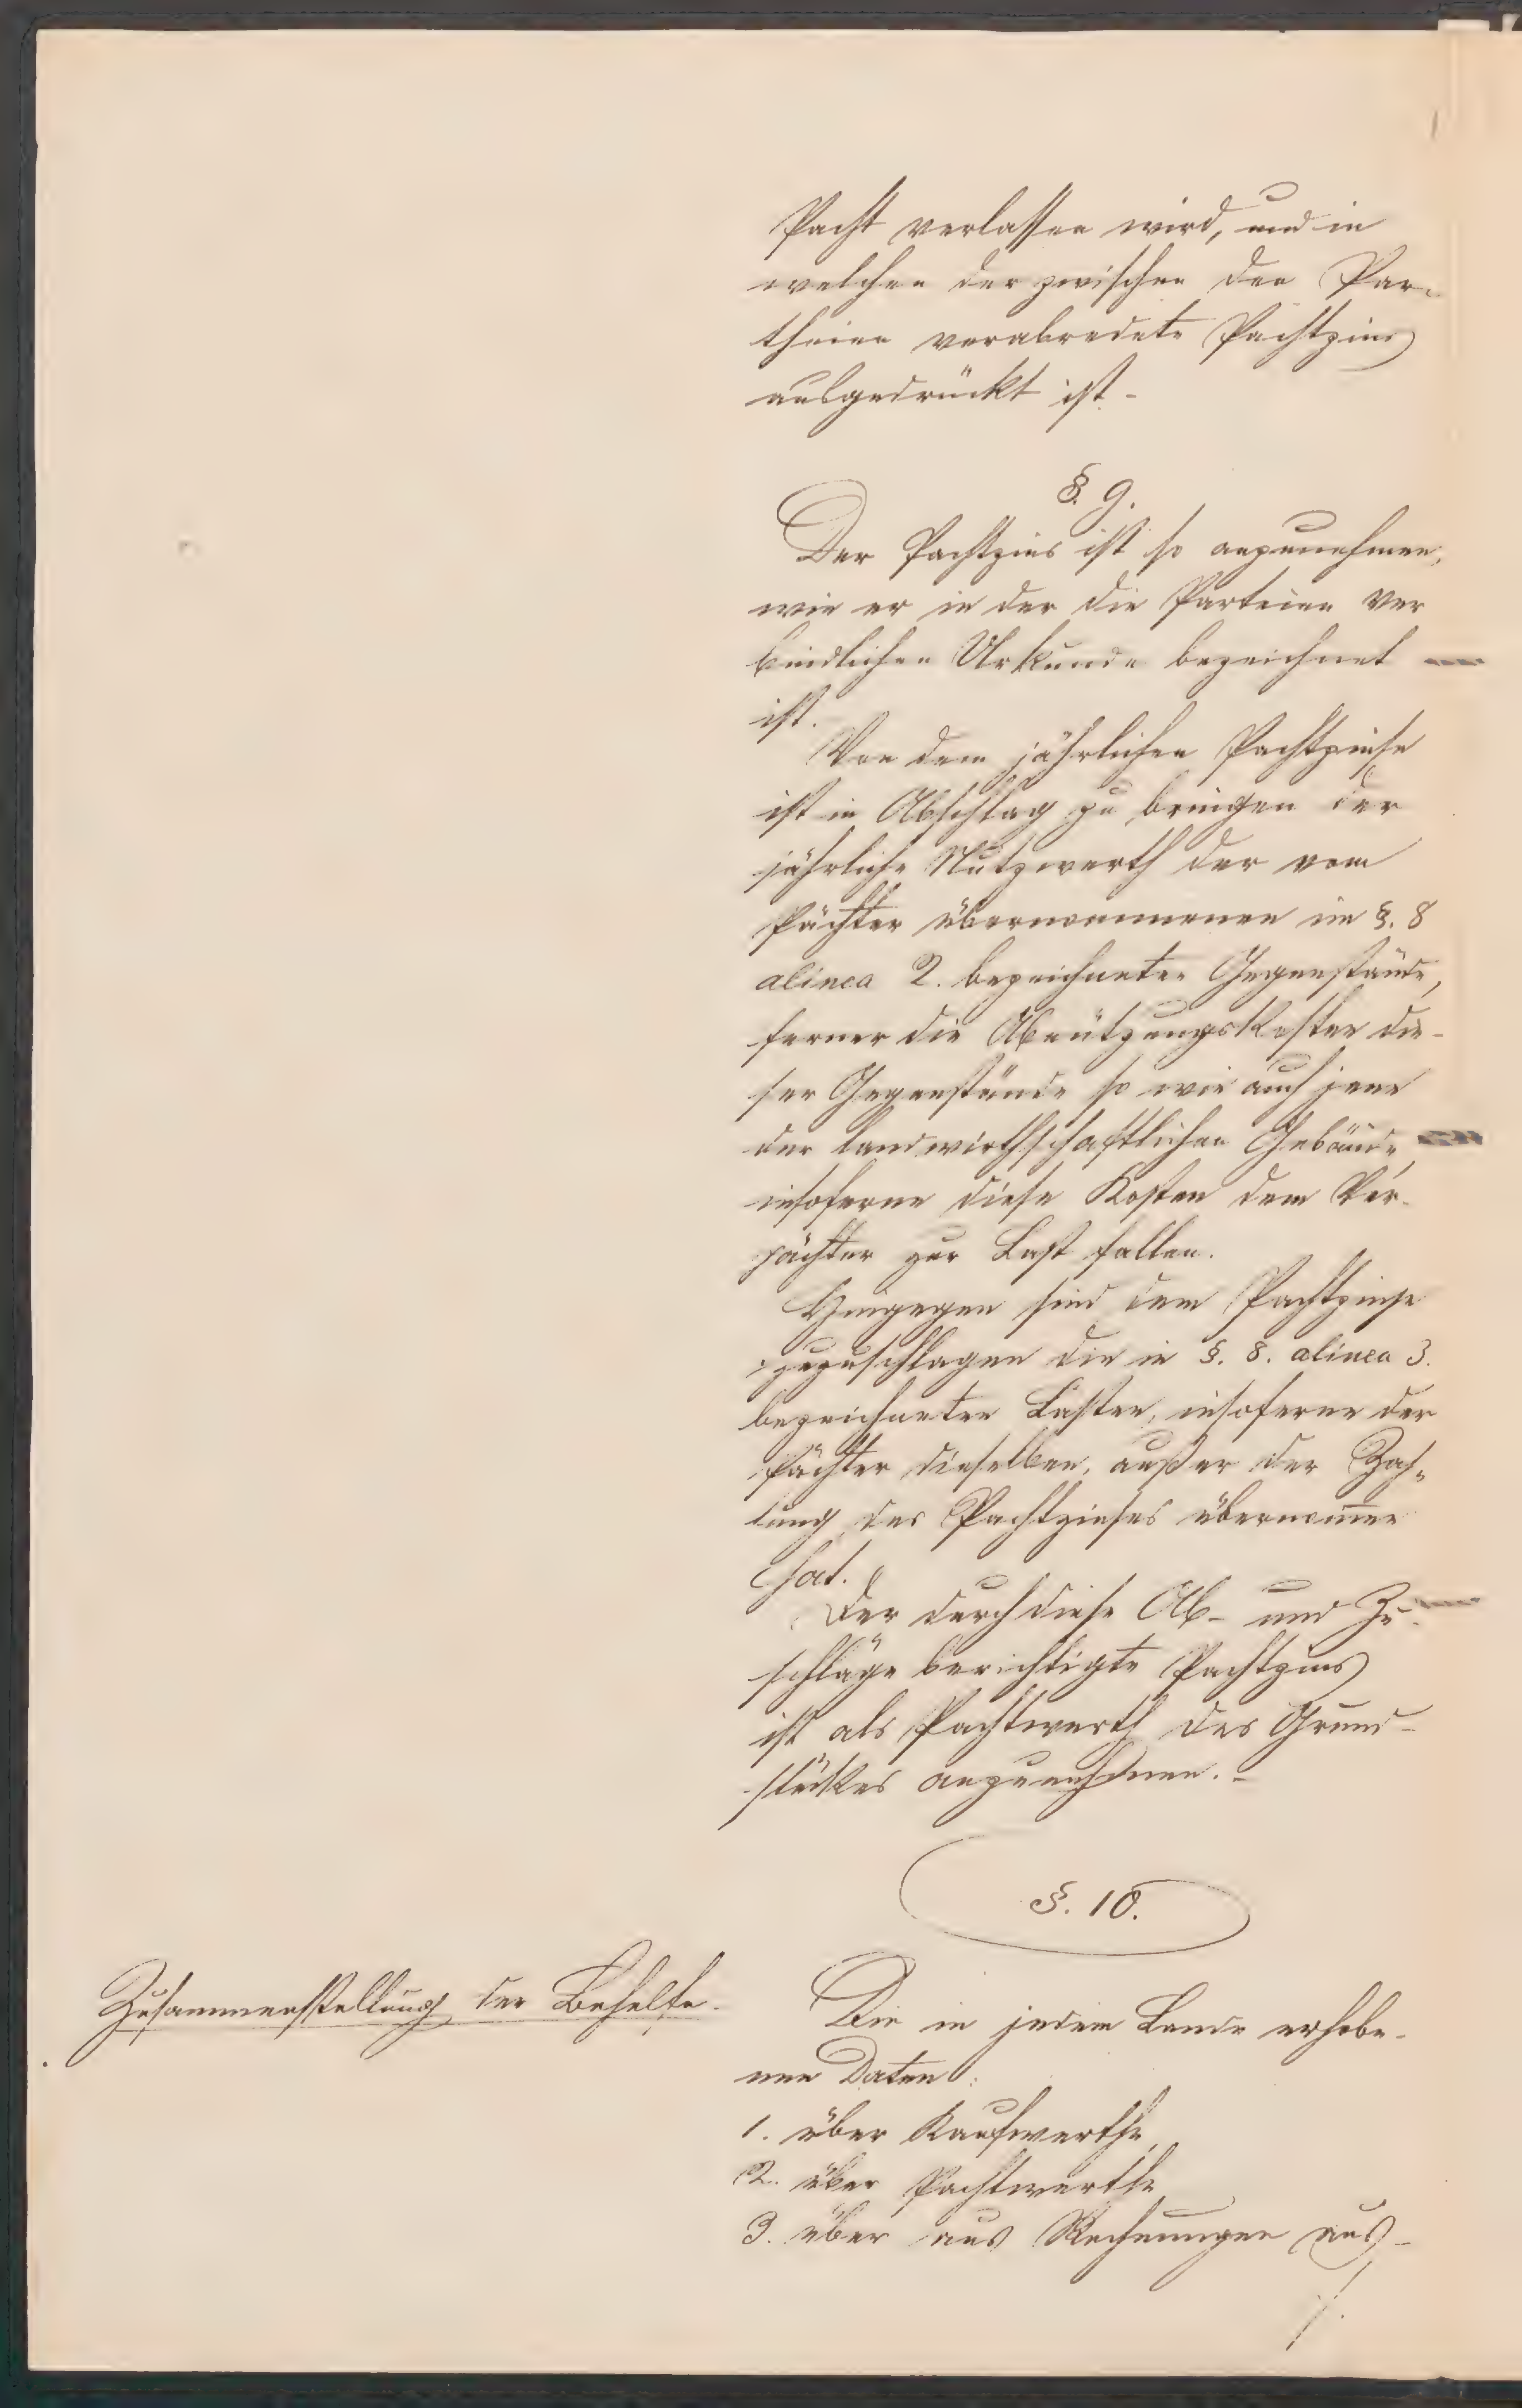 Pacht verlassen wird, und in
welchen der zwischen den Par-
theien verabredete Pachtzins
ausgedrückt ist.-
§. 9.
Der Pachtzins ist so anzunehmen,
wie er in der die Parteien ver
bindlichen Urkunde bezeichnet
ist.
Von dem jährlichen Pachtzinse
ist in Abschlag zu bringen der
jährliche Nutzwerth der vom
Pächter übernommenen im §. 8
alinea 2. bezeichneten Gegenstände,
ferner die Abnützungskosten die-
ser Gegenstände so wie auch jene
der landwirthschaftlichen Gebäude,
insoferne diese Kosten dem Ver-
pächter zur Last fallen.
Hingegen sind dem Pachtzinse
zuzuschlagen die in §. 8. alinea 3.
bezeichneten Lasten, insoferne der
Pächter dieselben, außer der Zah-
lung des Pachtzinses übernom̅en
hat.
Der durch diese Ab- und Zu-
schläge berichtigte Pachtzins
ist als Pachtwerth des Grund-
stückes anzunehmen.-
§. 10.
Zusammenstellung der Behelfe.
Die in jedem Lande erhobe-
nen Daten:
1. über Kaufwerthe,
2. über Pachtwerthe
3. über aus Rechnungen aus-
./.